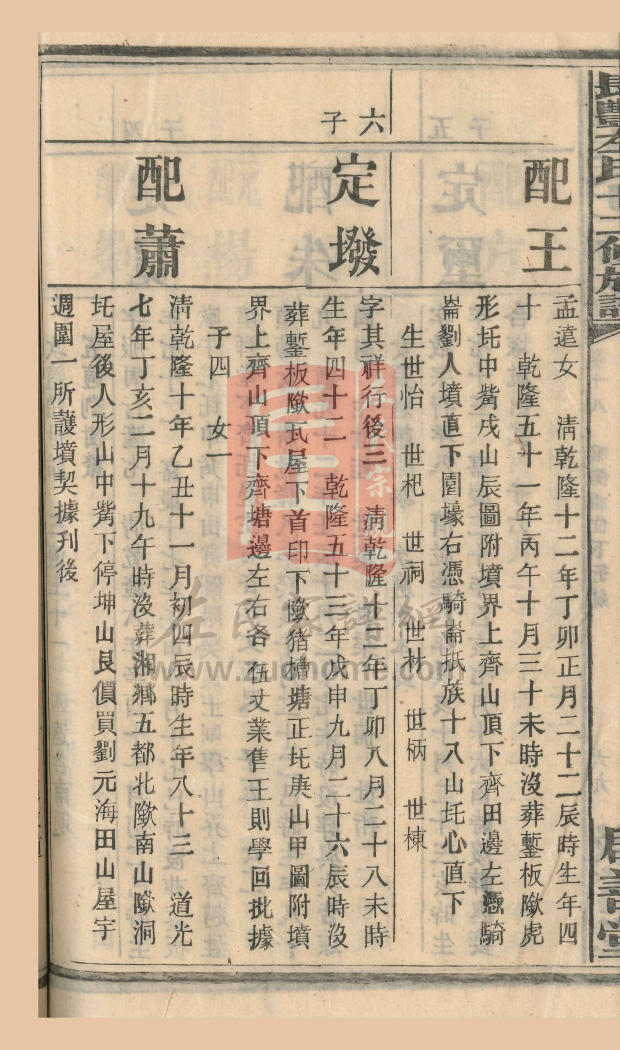 長豐左氏十二修族譜
配王
孟遠女　清乾隆十二年丁卯正月二十二辰時生年四
十　乾隆五十一年丙午十月三十未時沒葬鏨板陂虎
形圫中觜戌山辰圖附墳界上齊山頂下齊田邊左憑騎
崙劉人墳直下圍壕右憑騎崙抵族十八山圫心直下
生世怡　世杷　世祠　世材　世炳　世棟
六子
定墢
字其祥行後三　清乾隆十二年丁卯八月二十八未時
生年四十二　乾隆五十三年戊申九月二十六辰時沒
葬鏨板陂瓦屋下首印下陂豬槽塘正圫庚山甲圖附墳
界上齊山頂下齊塘邊左右各伍丈業售王則學回批據
子四　女一
配蕭
清乾隆十年乙丑十一月初四辰時生年八十三　道光
七年丁亥二月十九午時沒葬湘鄉五都北陂南山陂洞
圫屋後人形山中觜下停坤山艮價買劉元海田山屋宇
週圍一所護墳契據刊後
左氏家譜網
www.zuohome.com